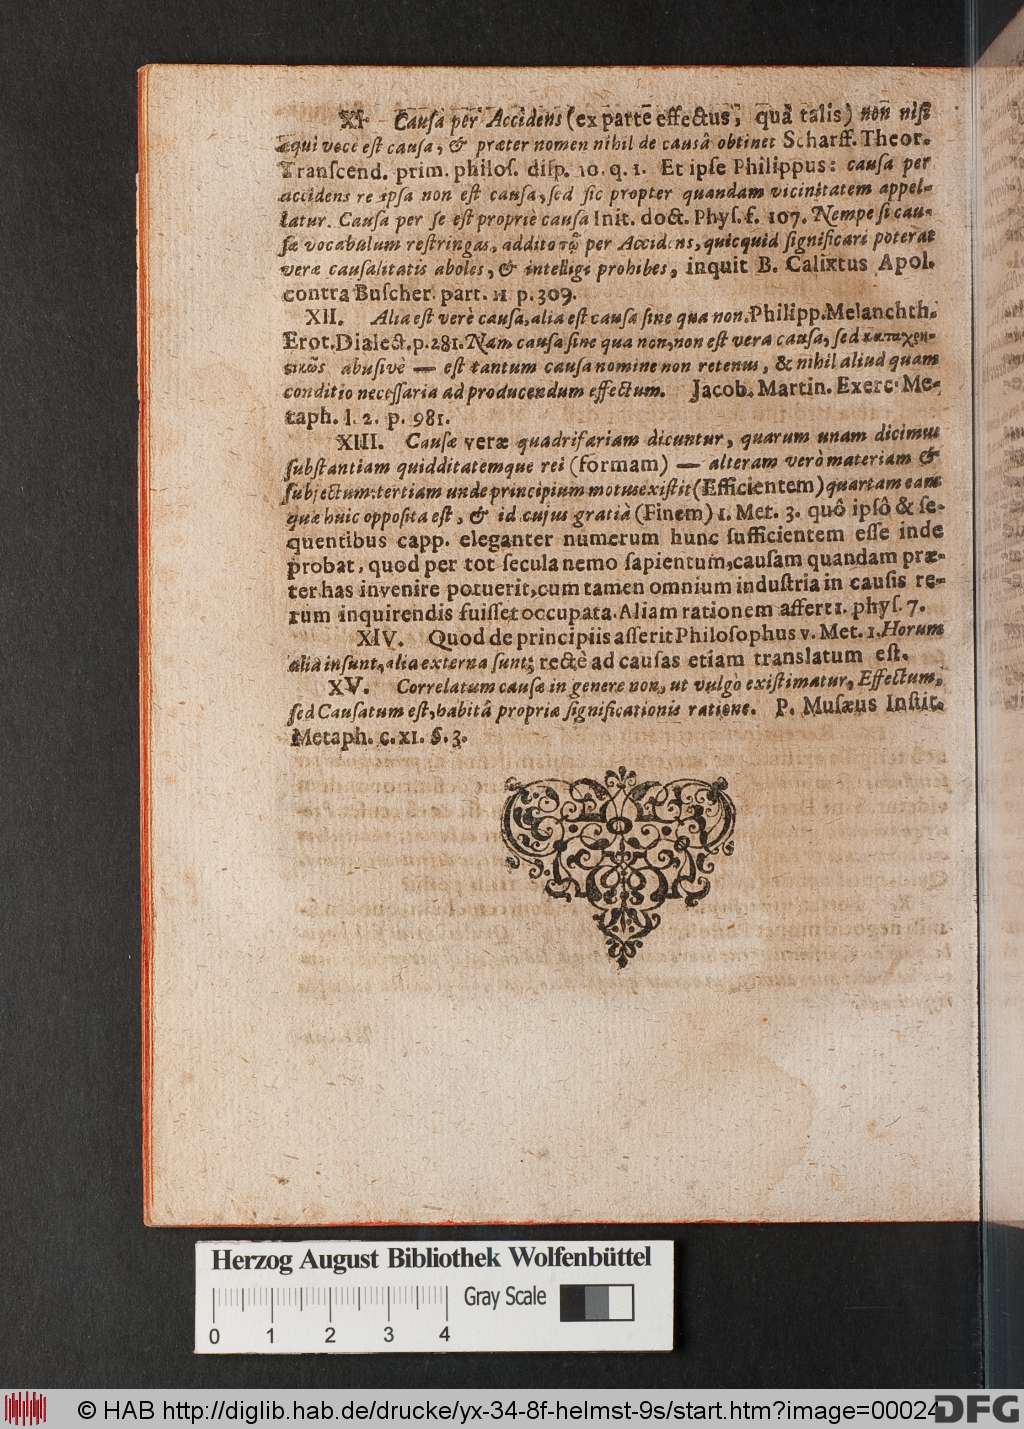 XI. Cauſa per Accidens (ex parte effectus, quâ talis) non niſi
æquivoce eſt cauſa, & præter nomen nihil de causâ obtinet Scharff. Theor.
Tranſcend. prim. philoſ. diſp. 10. q. 1. Et ipſe Philippus: cauſa per
accidens re ipſa non eſt cauſa, ſed ſic propter quandam vicinitatem appel-
latur. Cauſa per ſe eſt propriè cauſa Init. doct. Phyſ. f. 107. Nempe ſi cau-
ſæ vocabulum reſtringas, addito τῷ per Accidens, quicquid ſignificari poterat
veræ cauſalitatis aboles, & intelligi prohibes, inquit B. Calixtus Apol.
contra Buſcher. part. II p. 309.
XII. Alia eſt verè cauſa, alia eſt cauſa ſine qua non. Philipp. Melanchth.
Erot. Dialect. p. 281. Nam cauſa ſine qua non, non eſt vera cauſa, ſed καταχρη-
στικῶς abuſivè — eſt tantum cauſa nomine non retenus, & nihil aliud quam
conditio neceſſaria ad producendum effectum. Jacob. Martin. Exerc. Me-
taph. l. 2. p. 981.
XIII. Cauſæ veræ quadrifariam dicuntur, quarum unam dicimus
ſubſtantiam quidditatemque rei (formam) — alteram verò materiam &
ſubjectum: tertiam unde principium motus exiſtit (Efficientem) quartam eam
quæ huic oppoſita eſt, & id cujus gratiâ (Finem) 1. Met. 3. quô ipſô & ſe-
quentibus capp. eleganter numerum hunc ſufficientem eſſe inde
probat, quod per tot ſecula nemo ſapientum, cauſam quandam præ-
ter has invenire potuerit, cum tamen omnium induſtria in cauſis re-
rum inquirendis fuiſſet occupata. Aliam rationem affert 1. phyſ. 7.
XIV. Quod de principiis aſſerit Philoſophus v. Met. 1. Horum
alia inſunt, alia externa ſunt; rectè ad cauſas etiam translatum eſt.
XV. Correlatum cauſæ in genere non, ut vulgò exiſtimatur, Effectum,
ſed Cauſatum eſt, habitâ propriæ ſignificationis ratione. P. Muſæus Inſtit.
Metaph. c. XI. §. 3.
Herzog August Bibliothek Wolfenbüttel
Gray Scale
0 1 2 3 4
© HAB http://diglib.hab.de/drucke/yx-34-8f-helmst-9s/start.htm?image=00024
DFG